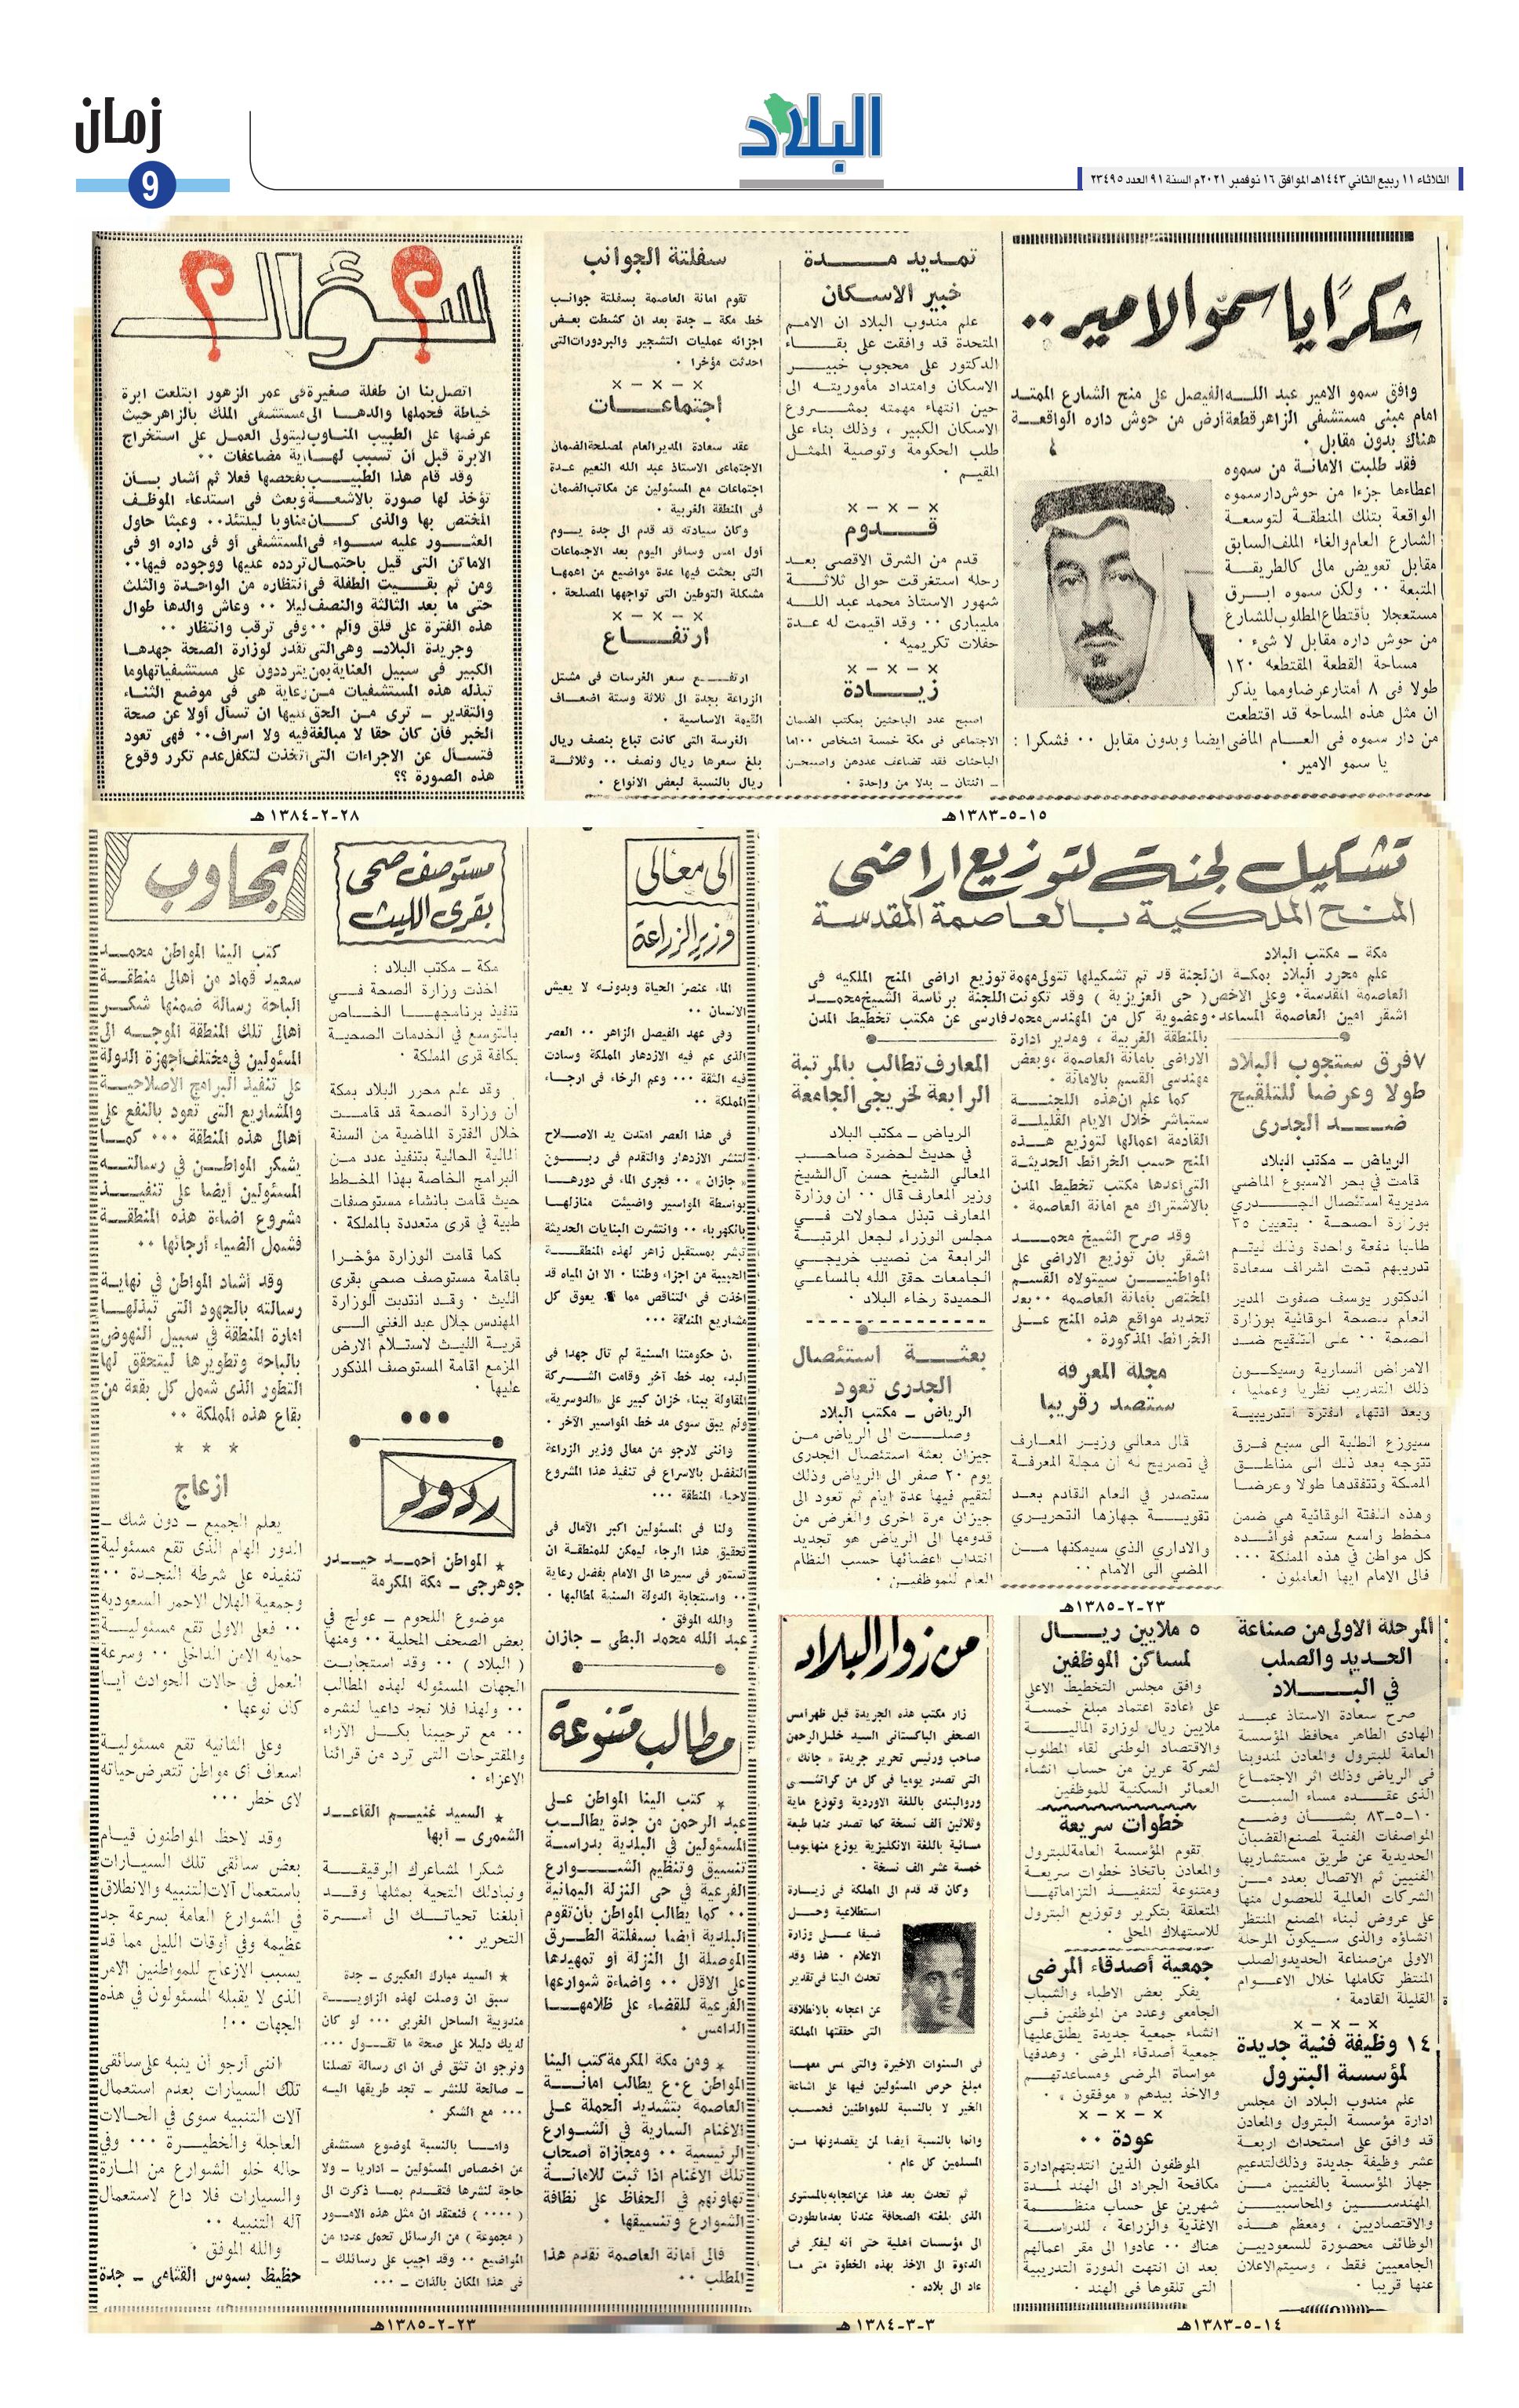 زمان
9
البلاد
الثلاثاء ١١ ربيع الثاني ١٤٤٣هـ الموافق ١٦ نوفمبر ٢٠٢١م السنة ٩١ العدد ٢٣٤٩٥
شكرًا يا سمو الامير ..
وافق سمو الامير عبد اللـه الفيصل على منح الشارع الممتـد
امام مبنى مستشفى الزاهر قطعة أرض من حوش داره الواقعـة
هناك بدون مقابل ٠
فقد طلبت الامانة من سموه
اعطاءها جزءا من حوش دار سموه
الواقعة بتلك المنطقة لتوسعة
الشارع العام والغاء الملف السابق
مقابل تعويض مالى كالطريقة
المتبعة ٠٠ ولكن سموه ابرق
مستعجلا بأقتطاع المطلوب للشارع
من حوش داره مقابل لا شىء ٠
مساحة القطعة المقتطعه ١٢٠
طولا فى ٨ أمتار عرضا ومما يذكر
ان مثل هذه المساحه قد اقتطعت
من دار سموه فى العـام الماضى ايضا وبدون مقابل ٠٠ فشكرا :
يا سمو الامير ٠
تمديد مدة
خبير الاسكان
علم مندوب البلاد ان الامم
المتحدة قد وافقت على بقاء
الدكتور على محجوب خبير
الاسكان وامتداد مأموريته الى
حين انتهاء مهمته بمشروع
الاسكان الكبير ، وذلك بناء على
طلب الحكومة وتوصية الممثل
المقيم ٠
× - × - ×
قدوم
قدم من الشرق الاقصى بعد
رحلة استغرقت حوالى ثلاثة
شهور الاستاذ محمد عبد الله
مليبارى ٠٠ وقد اقيمت له عدة
حفلات تكريميه ٠
× - × - ×
زيادة
اصبح عدد الباحثين بمكتب الضمان
الاجتماعى فى مكة خمسة اشخاص ٠٠ اما
الباحثات فقد تضاعف عددهن واصبحن
- اثنتان - بدلا من واحدة ٠
سفلتة الجوانب
تقوم امانة العاصمة بسفلتة جوانب
خط مكة - جدة بعد ان كشطت بعض
اجزائه عمليات التشجير والبردورات التى
احدثت مؤخرا ٠
× - × - ×
اجتماعات
عقد سعادة المدير العام لمصلحة الضمان
الاجتماعى الاستاذ عبد الله النعيم عدة
اجتماعات مع المسئولين عن مكاتب الضمان
فى المنطقة الغربية ٠
وكان سيادته قد قدم الى جدة يوم
أول امس وسافر اليوم بعد الاجتماعات
التى بحثت فيها عدة مواضيع من اهمها
مشكلة التوطين التى تواجهها المصلحة ٠
× - × - ×
ارتفاع
ارتفع سعر الغرسات فى مشتل
الزراعة بجدة الى ثلاثة وستة اضعاف
القيمة الاساسية ٠
الغرسة التى كانت تباع بنصف ريال
بلغ سعرها ريال ونصف ٠٠ وثلاثة
ريال بالنسبة لبعض الانواع ٠
١٥-٥-١٣٨٣هـ
سؤال ؟ ؟
اتصل بنا ان طفلة صغيرة فى عمر الزهور ابتلعت ابرة
خياطة فحملها والدها الى مستشفى الملك بالزاهر حيث
عرضها على الطبيب المناوب ليتولى العمل على استخراج
الابرة قبل أن تسبب لها اية مضاعفات ٠٠
وقد قام هذا الطبيب بفحصها فعلا ثم أشار بأن
تؤخذ لها صورة بالاشعة وبعث فى استدعاء الموظف
المختص بها والذى كان مناوبا ليلتئذ ٠٠ وعبثا حاول
العثور عليه سواء فى المستشفى أو فى داره او فى
الاماكن التى قيل باحتمال تردده عليها ووجوده فيها ٠٠
ومن ثم بقيت الطفلة فى انتظاره من الواحدة والثلث
حتى ما بعد الثالثة والنصف ليلا ٠٠ وعاش والدها طوال
هذه الفترة على قلق والم ٠٠ وفى ترقب وانتظار ٠٠
وجريدة البلاد - وهى التى تقدر لوزارة الصحة جهدها
الكبير فى سبيل العناية بمن يترددون على مستشفياتها وما
تبذله هذه المستشفيات من رعاية هى فى موضع الثناء
والتقدير - ترى من الحق عليها ان تسأل أولا عن صحة
الخبر فأن كان حقا لا مبالغة فيه ولا اسراف ٠٠ فهى تعود
فتسأل عن الاجراءات التى اتخذت لتكفل عدم تكرر وقوع
هذه الصورة ؟؟
٢٨-٢-١٣٨٤هـ
تشكيل لجنة لتوزيع اراضى
المنح الملكية بالعاصمة المقدسة
مكة - مكتب البلاد
علم محرر البلاد بمكة ان لجنة قد تم تشكيلها تتولى مهمة توزيع اراضى المنح الملكيه فى
العاصمة المقدسة ٠ وعلى الاخص ( حى العزيزية ) وقد تكونت اللجنة برئاسة الشيخ محمد
اشقر امين العاصمة المساعد ٠ وعضوية كل من المهندس محمد فارسى عن مكتب تخطيط المدن
بالمنطقة الغربية ، ومدير ادارة
الاراضى بامانة العاصمة ، وبعض
مهندسى القسم بالامانة ٠
كما علم ان هذه اللجنة
ستباشر خلال الايام القليلة
القادمة اعمالها لتوزيع هذه
المنح حسب الخرائط الحديثة
التى اعدها مكتب تخطيط المدن
بالاشتراك مع امانة العاصمة ٠
وقد صرح الشيخ محمد
اشقر بان توزيع الاراضى على
المواطنين سيتولاه القسم
المختص بامانة العاصمه ٠٠ بعد
تحديد مواقع هذه المنح على
الخرائط المذكورة ٠
٧ فرق ستجوب البلاد
طولا وعرضا للتلقيح
ضد الجدرى
الرياض - مكتب البلاد
قامت في بحر الاسبوع الماضي
مديرية استئصال الجدري
بوزارة الصحة ٠ بتعيين ٣٥
طالبا دفعة واحدة وذلك ليتم
تدريبهم تحت اشراف سعادة
الدكتور يوسف صفوت المدير
العام للصحة الوقائية بوزارة
الصحة ٠٠ على التلقيح ضد
الامراض السارية وسيكون
ذلك التدريب نظريا وعمليا ،
وبعد انتهاء الفترة التدريبية
سيوزع الطلبة الى سبع فرق
تتوجه بعد ذلك الى مناطق
المملكة وتتفقدها طولا وعرضا
وهذه اللفتة الوقائية هي ضمن
مخطط واسع ستعم فوائده
كل مواطن في هذه المملكة ٠٠٠
فالى الامام ايها العاملون ٠
مجلة المعرفة
ستصدر قريبا
قال معالي وزير المعارف
في تصريح له ان مجلة المعرفة
ستصدر في العام القادم بعد
تقوية جهازها التحريري
والاداري الذي سيمكنها من
المضي الى الامام ٠٠
المعارف تطالب بالمرتبة
الرابعة لخريجى الجامعة
الرياض - مكتب البلاد
في حديث لحضرة صاحب
المعالي الشيخ حسن آل الشيخ
وزير المعارف قال ٠٠ ان وزارة
المعارف تبذل محاولات في
مجلس الوزراء لجعل المرتبة
الرابعة من نصيب خريجي
الجامعات حقق الله بالمساعي
الحميدة رخاء البلاد ٠
بعثة استئصال
الجدرى تعود
الرياض - مكتب البلاد
وصلت الى الرياض من
جيزان بعثة استئصال الجدرى
يوم ٢٠ صفر الى الرياض وذلك
لتقيم فيها عدة ايام ثم تعود الى
جيزان مرة اخرى والغرض من
قدومها الى الرياض هو تجديد
انتداب اعضائها حسب النظام
العام للموظفين ٠
٢٣-٢-١٣٨٥هـ
الى معالى
وزير الزراعة
الماء عنصر الحياة وبدونه لا يعيش
الانسان ٠٠
وفى عهد الفيصل الزاهر ٠٠ العصر
الذى عم فيه الازدهار المملكة وسادت
فيه الثقة ٠٠٠ وعم الرخاء فى ارجاء
المملكة ٠٠
فى هذا العصر امتدت يد الاصلاح
لتنشر الازدهار والتقدم فى ربوع
« جازان » ٠٠ فجرى الماء فى دورها
بواسطة المواسير واضيئت منازلها
بالكهرباء ٠٠ وانتشرت البنايات الحديثة
تبشر بمستقبل زاهر لهذه المنطقة
الحبيبة من اجزاء وطننا ٠ الا ان المياه قد
اخذت فى التناقص مما يعوق كل
مشاريع المنطقة ٠٠٠
ان حكومتنا السنية لم تال جهدا فى
البدء بمد خط آخر وقامت الشركة
المقاولة ببناء خزان كبير على «الدوسرية»
ولم يبق سوى مد خط المواسير الآخر ٠
وانى لارجو من معالى وزير الزراعة
التفضل بالاسراع فى تنفيذ هذا المشروع
لاحياء المنطقة ٠٠٠
ولنا فى المسئولين اكبر الآمال فى
تحقيق هذا الرجاء ليمكن للمنطقة ان
تستمر فى سيرها الى الامام بفضل رعاية
٠٠ واستجابة الدولة السنية لمطالبها ٠
والله الموفق ٠
عبد الله محمد البطى - جازان
مطالب متنوعة
★ كتب الينا المواطن على
عبد الرحمن من جدة يطالب
المسئولين في البلدية بدراسة
تنسيق وتنظيم الشوارع
الفرعية في حى النزلة اليمانية
٠٠ كما يطالب المواطن بأن تقوم
البلدية أيضا بسفلتة الطرق
الموصلة الى النزلة أو تمهيدها
على الاقل ٠٠ واضاءة شوارعها
الفرعية للقضاء على ظلامها
الدامس ٠
★ ومن مكة المكرمة كتب الينا
المواطن ع٠ع يطالب امانة
العاصمة بتشديد الحملة على
الاغنام السارية في الشوارع
الرئيسية ٠٠ ومجازاة أصحاب
تلك الاغنام اذا ثبت للامانة
تهاونهم في الحفاظ على نظافة
الشوارع وتنسيقها ٠
فالى أمانة العاصمة نقدم هذا
المطلب ٠٠
مستوصف صحى
بقرى الليث
مكة - مكتب البلاد :
اخذت وزارة الصحة في
تنفيذ برنامجها الخاص
بالتوسع في الخدمات الصحية
بكافة قرى المملكة ٠
وقد علم محرر البلاد بمكة
ان وزارة الصحة قد قامت
خلال الفترة الماضية من السنة
المالية الحالية بتنفيذ عدد من
البرامج الخاصة بهذا المخطط
حيث قامت بانشاء مستوصفات
طبية في قرى متعددة بالمملكة ٠
كما قامت الوزارة مؤخرا
باقامة مستوصف صحي بقرى
الليث ٠ وقد انتدبت الوزارة
المهندس جلال عبد الغني الى
قرية الليث لاستلام الارض
المزمع اقامة المستوصف المذكور
عليها ٠
ردود
★ المواطن أحمد حيدر
جوهرجى - مكة المكرمة
موضوع اللحوم - عولج في
بعض الصحف المحلية ٠٠ ومنها
( البلاد ) ٠٠ وقد استجابت
الجهات المسئوله لهذه المطالب
٠٠ ولهذا فلا نجد داعيا لنشره
٠٠ مع ترحيبنا بكل الاراء
والمقترحات التى ترد من قرائنا
الاعزاء ٠
★ السيد غنيم القاعد
الشمرى - أبها
شكرا لمشاعرك الرقيقة
ونبادلك التحيه بمثلها وقد
أبلغنا تحياتك الى أسرة
التحرير ٠٠
★ السيد مبارك العكبرى - جدة
سبق ان وصلت لهذه الزاوية
مندوبية الساحل الغربى ٠٠٠ لو كان
لديك دليلا على صحة ما تقول ٠٠٠
ونرجو ان تثق فى ان اى رسالة تصلنا
- صالحة للنشر - تجد طريقها اليه
٠٠٠ مع الشكر ٠
واما بالنسبة لموضوع مستشفى
من اختصاص المسئولين - اداريا - ولا
حاجة لنشرها فنقدم بما ذكرت الى
( ٠٠٠٠ ) فنعتقد ان مثل هذه الامور
( مجموعة ) من الرسائل تحمل عددا من
المواضيع ٠٠ وقد اجيب على رسائلك -
فى هذا المكان بالذات - ٠٠٠
تجاوب
كتب الينا المواطن محمد
سعيد قماد من أهالى منطقة
الباحة رسالة ضمنها شكر
أهالى تلك المنطقة الموجه الى
المسئولين في مختلف أجهزة الدولة
على تنفيذ البرامج الاصلاحية
والمشاريع التى تعود بالنفع على
أهالى هذه المنطقة ٠٠٠ كما
يشكر المواطن في رسالته
المسئولين أيضا على تنفيذ
مشروع اضاءة هذه المنطقة
فشمل الضياء أرجائها ٠٠
وقد أشاد المواطن في نهاية
رسالته بالجهود التى تبذلها
امارة المنطقة في سبيل النهوض
بالباحة وتطويرها ليتحقق لها
التطور الذى شمل كل بقعة من
بقاع هذه المملكة ٠٠
* * *
ازعاج
يعلم الجميع - دون شك -
الدور الهام الذى تقع مسئولية
تنفيذه على شرطة النجدة ٠٠
وجمعية الهلال الاحمر السعوديه
٠٠ فعلى الاولى تقع مسئولية
حمايه الامن الداخلى ٠٠ وسرعة
العمل في حالات الحوادث أيا
كان نوعها ٠
وعلى الثانيه تقع مسئولية
اسعاف أى مواطن تتعرض حياته
لاى خطر ٠٠٠
وقد لاحظ المواطنون قيام
بعض سائقى تلك السيارات
باستعمال آلات التنبيه والانطلاق
في الشوارع العامة بسرعة جد
عظيمه وفي أوقات الليل مما قد
يسبب الازعاج للمواطنين الامر
الذى لا يقبله المسئولون في هذه
الجهات ٠٠!
اننى أرجو أن ينبه على سائقى
تلك السيارات بعدم استعمال
آلات التنبيه سوى في الحالات
العاجلة والخطيرة ٠٠٠ وفي
حاله خلو الشوارع من المارة
والسيارات فلا داع لاستعمال
آله التنبيه ٠٠
والله الموفق ٠
حظيظ بسوس القثامى - جدة
٢٣-٢-١٣٨٥هـ
من زوار البلاد
زار مكتب هذه الجريدة قبل ظهر امس
الصحفى الباكستانى السيد خليل الرحمن
صاحب ورئيس تحرير جريدة « جانك »
التى تصدر يوميا فى كل من كراتشى
وروالبندى باللغة الاوردية وتوزع ماية
وثلاثين الف نسخة كما تصدر عنها طبعة
مسائية باللغة الانكليزية يوزع منها يوميا
خمسة عشر الف نسخة ٠
وكان قد قدم الى المملكة فى زيارة
استطلاعية وحل
ضيفا على وزارة
الاعلام ٠ هذا وقد
تحدث الينا فى تقدير
عن اعجابه بالانطلاقة
التى حققتها المملكة
فى السنوات الاخيرة والتى لمس معها
مبلغ حرص المسئولين فيها على اشاعة
الخير لا بالنسبة للمواطنين فحسب
وانما بالنسبة أيضا لمن يقصدونها من
المسلمين كل عام ٠
ثم تحدث بعد هذا عن اعجابه بالمستوى
الذى بلغته الصحافة عندنا بعدما تطورت
الى مؤسسات أهلية حتى أنه ليفكر فى
الدعوة الى الاخذ بهذه الخطوة متى ما
عاد الى بلاده ٠
٣-٣-١٣٨٤هـ
المرحلة الاولى من صناعة
الحديد والصلب
في البلاد
صرح سعادة الاستاذ عبد
الهادى الطاهر محافظ المؤسسة
العامة للبترول والمعادن لمندوبنا
فى الرياض وذلك اثر الاجتماع
الذى عقده مساء السبت
١٠-٥-٨٣ بشأن وضع
المواصفات الفنية لمصنع القضبان
الحديدية عن طريق مستشاريها
الفنيين ثم الاتصال بعدد من
الشركات العالمية للحصول منها
على عروض لبناء المصنع المنتظر
انشاؤه والذى سيكون المرحلة
الاولى من صناعة الحديد والصلب
المنتظر تكاملها خلال الاعوام
القليلة القادمة ٠
× - × - ×
١٤ وظيفة فنية جديدة
لمؤسسة البترول
علم مندوب البلاد ان مجلس
ادارة مؤسسة البترول والمعادن
قد وافق على استحداث اربعة
عشر وظيفة جديدة وذلك لتدعيم
جهاز المؤسسة بالفنيين من
المهندسين والمحاسبين
والاقتصاديين ، ومعظم هذه
الوظائف محصورة للسعوديين
الجامعيين فقط ، وسيتم الاعلان
عنها قريبا ٠
٥ ملايين ريال
لمساكن الموظفين
وافق مجلس التخطيط الاعلى
على اعادة اعتماد مبلغ خمسة
ملايين ريال لوزارة المالية
والاقتصاد الوطنى لقاء المطلوب
لشركة عرين من حساب انشاء
العمائر السكنية للموظفين
خطوات سريعة
تقوم المؤسسة العامة للبترول
والمعادن باتخاذ خطوات سريعة
ومتنوعة لتنفيذ التزاماتها
المتعلقة بتكرير وتوزيع البترول
للاستهلاك المحلى ٠
جمعية أصدقاء المرضى
يفكر بعض الاطباء والشباب
الجامعى وعدد من الموظفين فى
انشاء جمعية جديدة يطلق عليها
جمعية أصدقاء المرضى ٠ وهدفها
مواساة المرضى ومساعدتهم
والاخذ بيدهم « موفقون » ٠
× - × - ×
عودة ٠٠
الموظفون الذين انتدبتهم ادارة
مكافحة الجراد الى الهند لمدة
شهرين على حساب منظمة
الاغذية والزراعة ، للدراسة
هناك ٠٠ عادوا الى مقر اعمالهم
بعد ان انتهت الدورة التدريبية
التى تلقوها فى الهند ٠
١٤-٥-١٣٨٣هـ